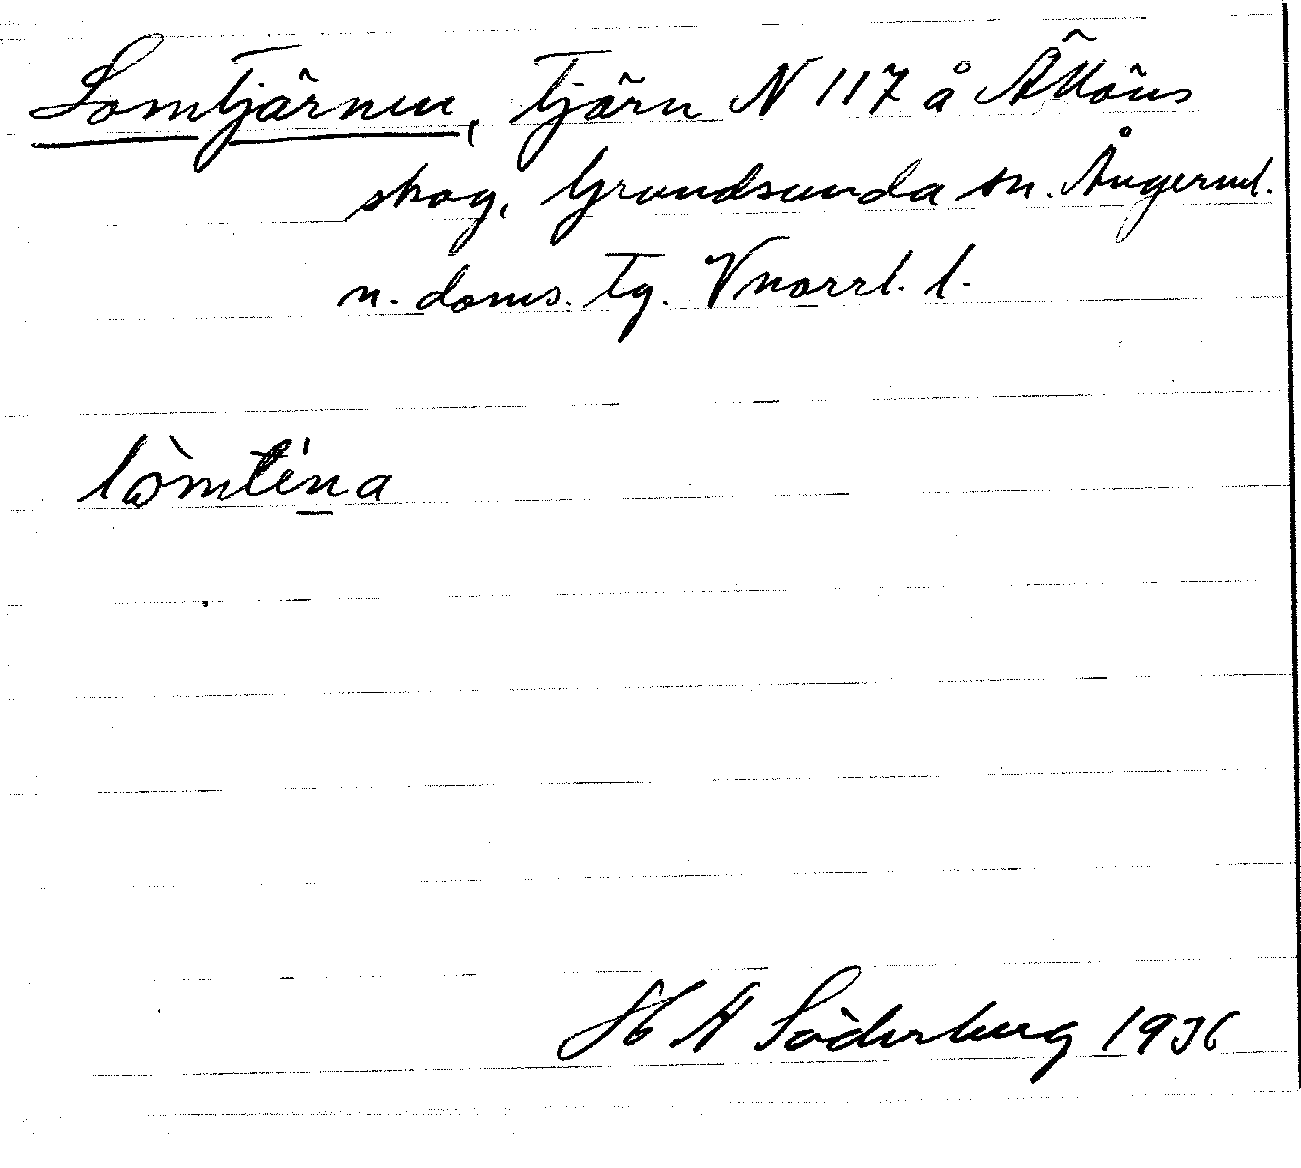 Lomtjärnen, tjärn N 117 å Ällöns
skog, Grundsunda sn. Ångerml.
n. doms. tg. Vnorrl. l.
lòmtína
H A Söderberg 1936